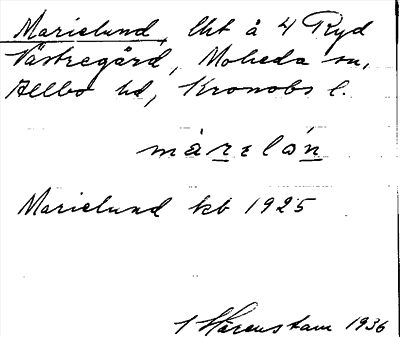 Marielund, lht å 4 Ryd
Västregård, Moheda sn,
Allbo hd, Kronobs l.
màrelón
Marielund kb 1925
1 Hårenstam 1936